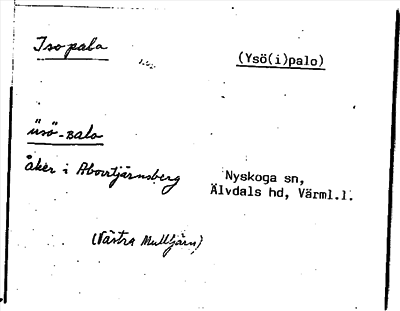 Iso pala
(Ysö(i)palo)
üsö-balo
åker i Abborrtjärnsberg
Nyskoga sn,
Älvdals hd, Värml.l.
(Västra Mulltjärn)